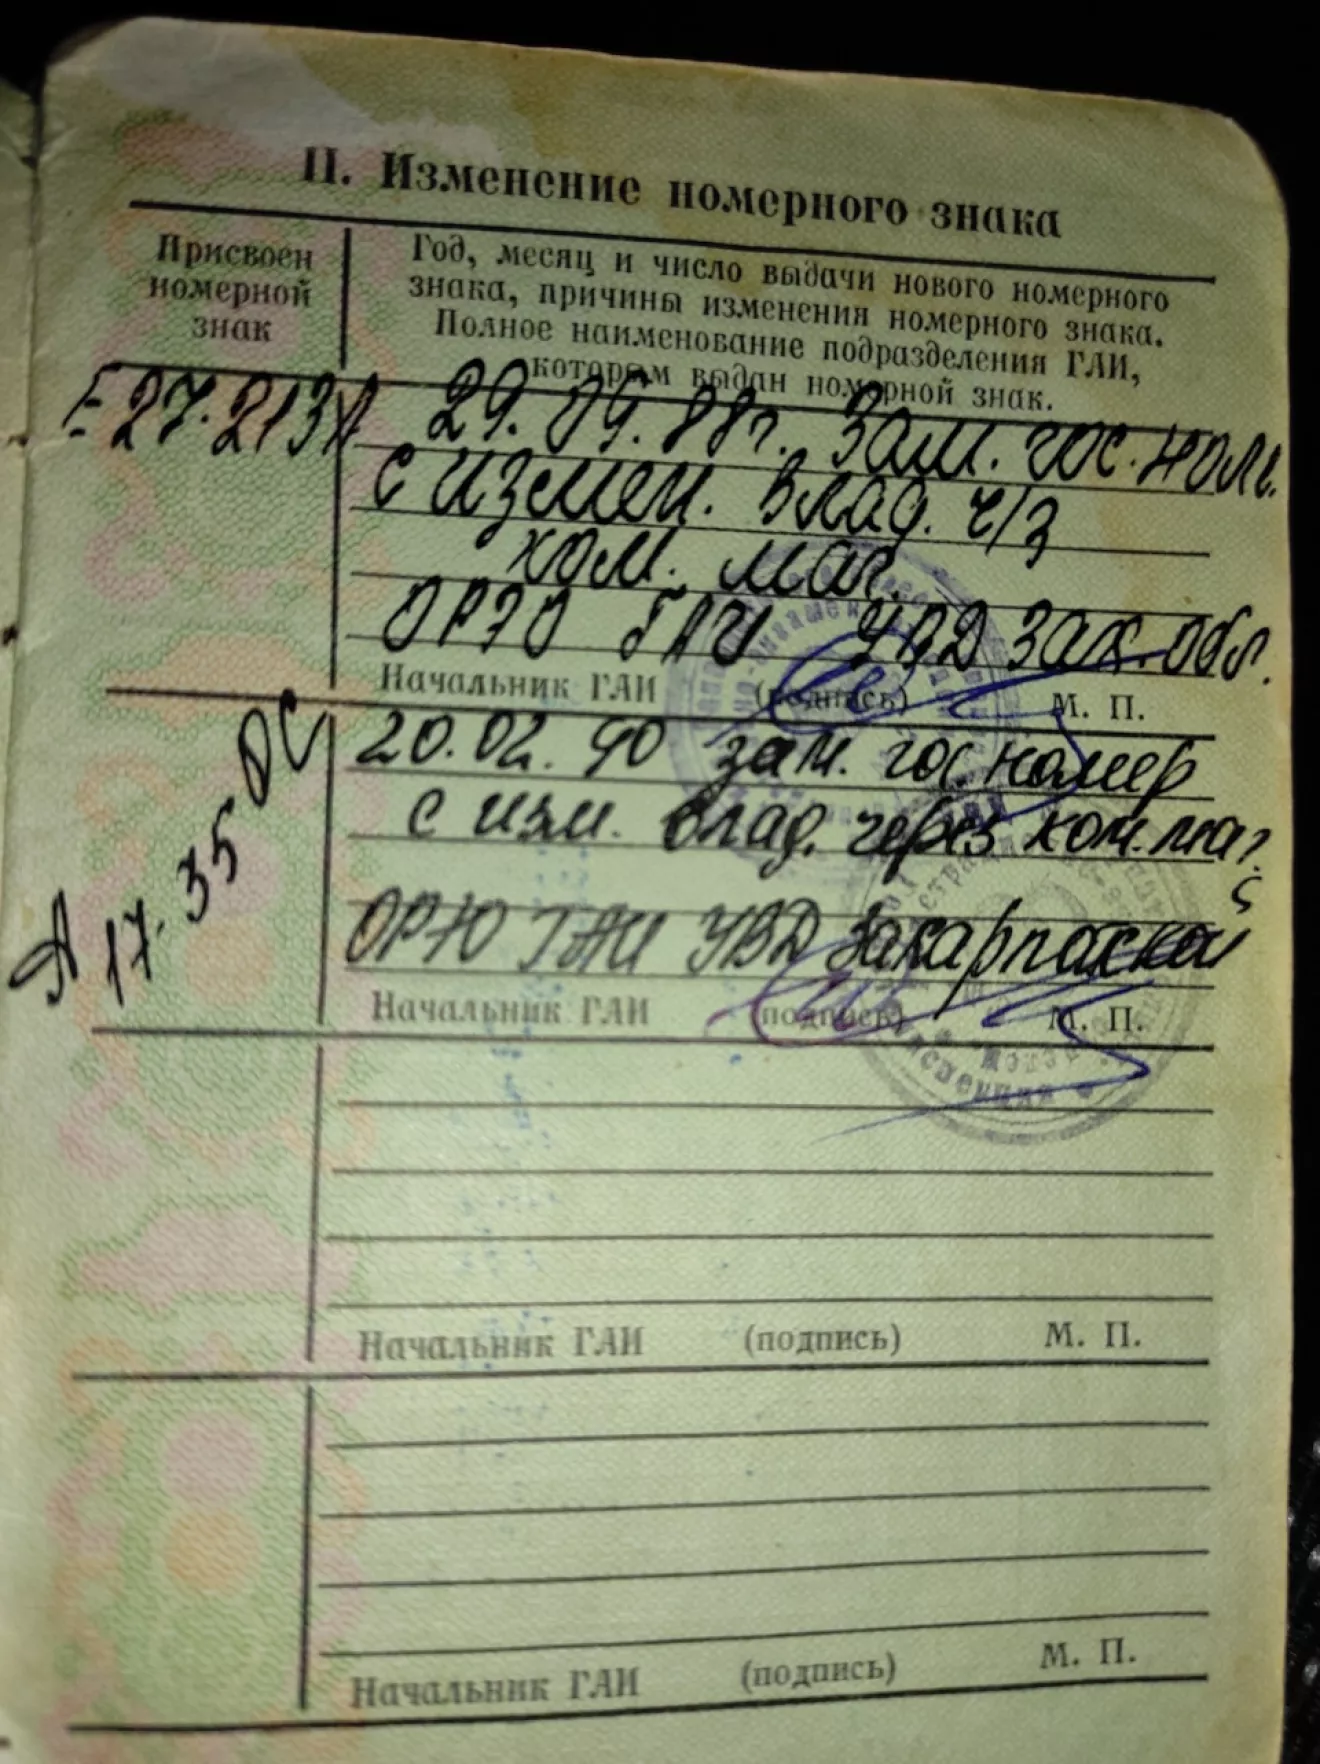 II. Изменение номерного знака
Присвоен
номерной
знак
Год, месяц и число выдачи нового номерного
знака, причины изменения номерного знака.
Полное наименование подразделения ГАИ,
которым выдан номерной знак.
29.09.88г. Зам. гос. ном.
с измен. влад. ч/з
ком. маг.
ГАИ УВД Зак. обл.
Начальник ГАИ (подпись) М. П.
20.02.90 зам. гос номер
с изм. влад. через ком. маг.
ГАИ УВД Закарпатской
А 17-35 ОС
Начальник ГАИ (подпись) М. П.
Начальник ГАИ (подпись) М. П.
Начальник ГАИ (подпись) М. П.